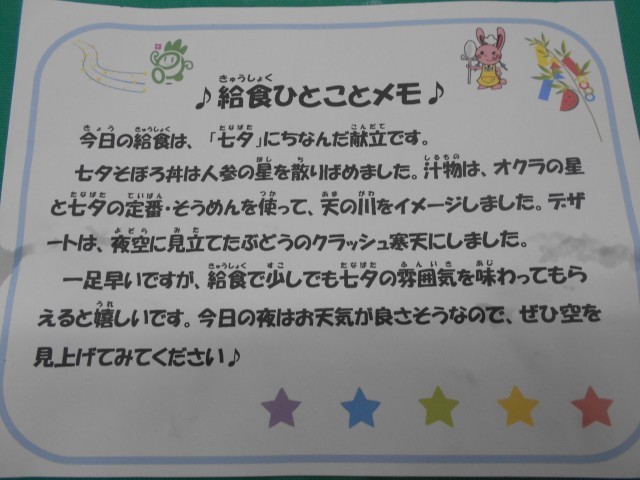 ♪給食ひとことメモ♪
今日の給食は、「七夕」にちなんだ献立です。
七夕そぼろ丼は人参の星を散りばめました。汁物は、オクラの星
と七夕の定番・そうめんを使って、天の川をイメージしました。デザ
ートは、夜空に見立てたぶどうのクラッシュ寒天にしました。
一足早いですが、給食で少しでも七夕の雰囲気を味わってもら
えると嬉しいです。今日の夜はお天気が良さそうなので、ぜひ空を
見上げてみてください♪